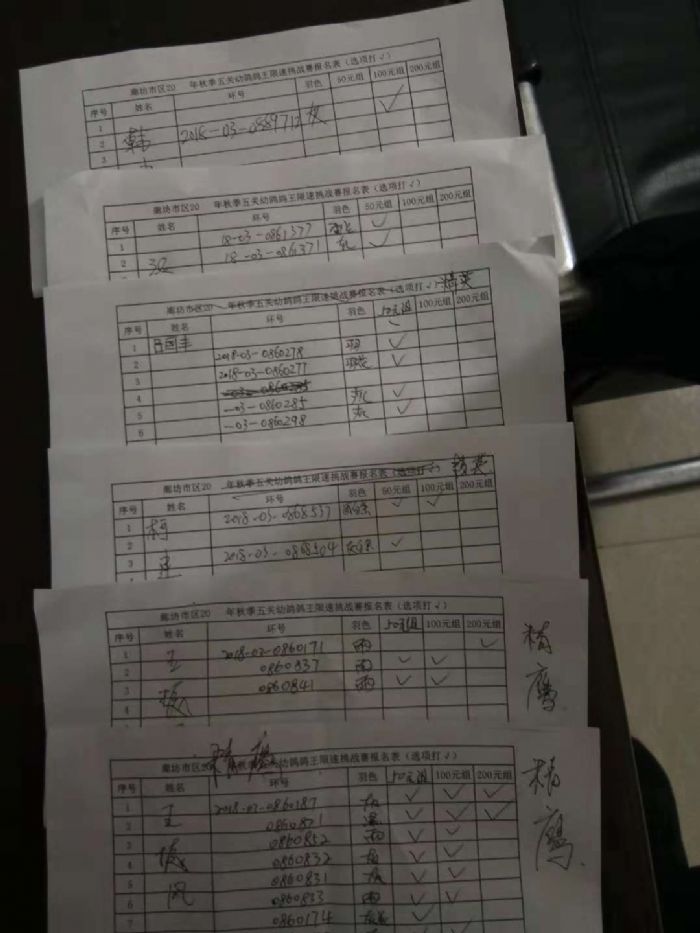 廊坊市区20 年秋季五关幼鸽鸽王限速挑战赛报名表（选项打√）
序号 姓名 环号 羽色 50元组 100元组 200元组
1 √
2 韩 2018-03-0889712 灰
3
廊坊市区20 年秋季五关幼鸽鸽王限速挑战赛报名表（选项打√）
序号 姓名 环号 羽色 50元组 100元组 200元组
1 18-03-0861377 √
2 18-03-0861371 √
廊坊市区20 年秋季五关幼鸽鸽王限速挑战赛报名表（选项打√） 精英
序号 姓名 环号 羽色 50元组 100元组 200元组
1 吕国丰
2 2018-03-0860278 √
3 2018-03-0860277
4 √
5 -03-0860285 √
6 -03-0860298
廊坊市区20 年秋季五关幼鸽鸽王限速挑战赛报名表（选项打√） 精英
序号 姓名 环号 羽色 50元组 100元组 200元组
1 柯 2018-03-0868537 √ √
2
3 2018-03-0868504 √
4
廊坊市区20 年秋季五关幼鸽鸽王限速挑战赛报名表（选项打√）
序号 姓名 环号 羽色 50元组 100元组 200元组
1 王 2018-03-0860171 雨 √
2 0860837 雨 √ √
3 振 0860841 雨 √ √
4
精鹰
廊坊市区 年秋季五关幼鸽鸽王限速挑战赛报名表（选项打√）
序号 姓名 环号 羽色 50元组 100元组 200元组
1 王 2018-03-0860187 灰 √ √ √
2 0860821 √ √ √
3 振 0860852 雨 √ √
4 0860832 √ √
5 风 0860831 灰 √ √
6 0860833 雨 √ √
7 0860174 √ √
精鹰